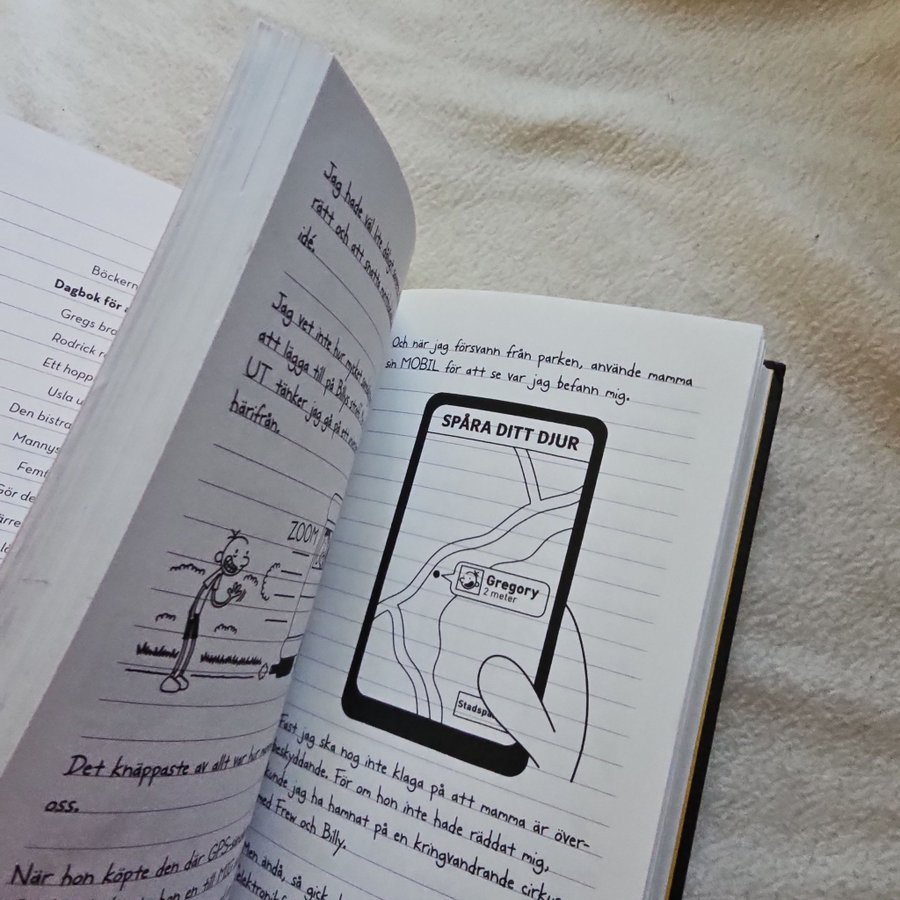 Böckern
Dagbok för
Gregs bra
Rodrick r
Ett hopp
Usla u
Den bistra
Mannys
Femt
Gör de
ärre
Jag hade väl lite dåligt
rätt och att snatta
idé.
Jag vet inte hur mycket
att lägga till på Billys
UT tänker jag gå på ett
härifrån.
ZOOM
Det knäppaste av allt var hur
oss.
När hon köpte den där GPS-
hon en till MIG
Och när jag försvann från parken, använde mamma
sin MOBIL för att se var jag befann mig.
SPÅRA DITT DJUR
Gregory
2 meter
Stadspa
Fast jag ska nog inte klaga på att mamma är över-
beskyddande. För om hon inte hade räddat mig,
kunde jag ha hamnat på en kringvandrande cirkus
med Frew och Billy.
Men ändå, så gick
elektronik